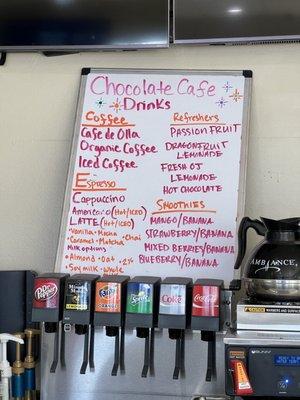 Chocolate Cafe
Drinks
Coffee
Cafe de Olla
Organic Coffee
Iced Coffee
Espresso
Cappuccino
Americano (Hot/iced)
LATTE (Hot/iced)
• Vanilla • Mocha
• Caramel • Matcha • Chai
Milk options
• Almond • Oat • 2%
• Soy milk • Whole
Refreshers
PASSION FRUIT
DRAGONFRUIT
LEMONADE
FRESH OJ
LEMONADE
HOT CHOCOLATE
SMOOTHIES
MANGO/BANANA
STRAWBERRY/BANANA
MIXED BERRIES/BANANA
BLUEBERRY/BANANA
Dr Pepper
Minute Maid
LEMONADE
Fanta
ORANGE
Sprite
Coke
Coca-Cola
AMBIANCE
BUNN